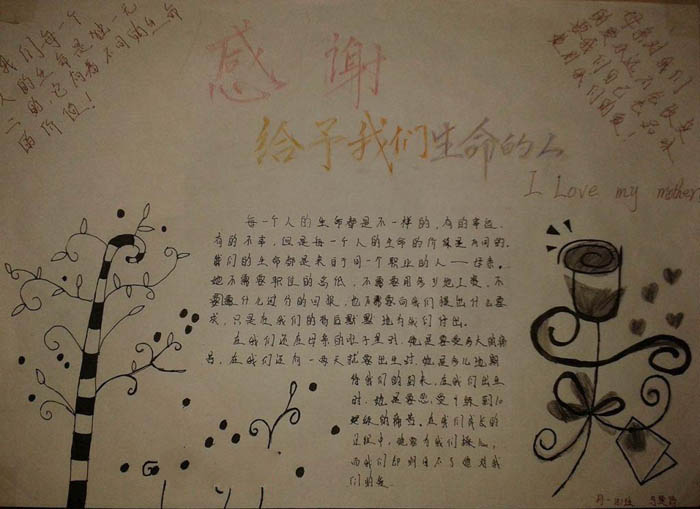 我们每一个
人的生命是独一无
二的,它有着不同的生命
的价值!
感谢
给予我们生命的人
I Love my mother
母亲对我们
的爱永远不会改变
每一个人的生命都是不一样的,有的幸运,
有的不幸,但是每一个人的生命的价值是不同的.
我们的生命都是来自于同一个职业的人——母亲。
她不需要职位的高低,不需要用多少地工资,不
需要什么过分的回报,也不需要向我们提出什么要
求,只是在我们的背后默默地为我们付出。
在我们还在母亲的肚子里时,她是要受多大疼痛
在我们还有一两天就要出生时,她是多么地期
待我们的到来,在我们出生
时,她是要忍受
的疼苦。在我们成长的
过程中,她要为我们操心,
而我们却对
们的爱.
G